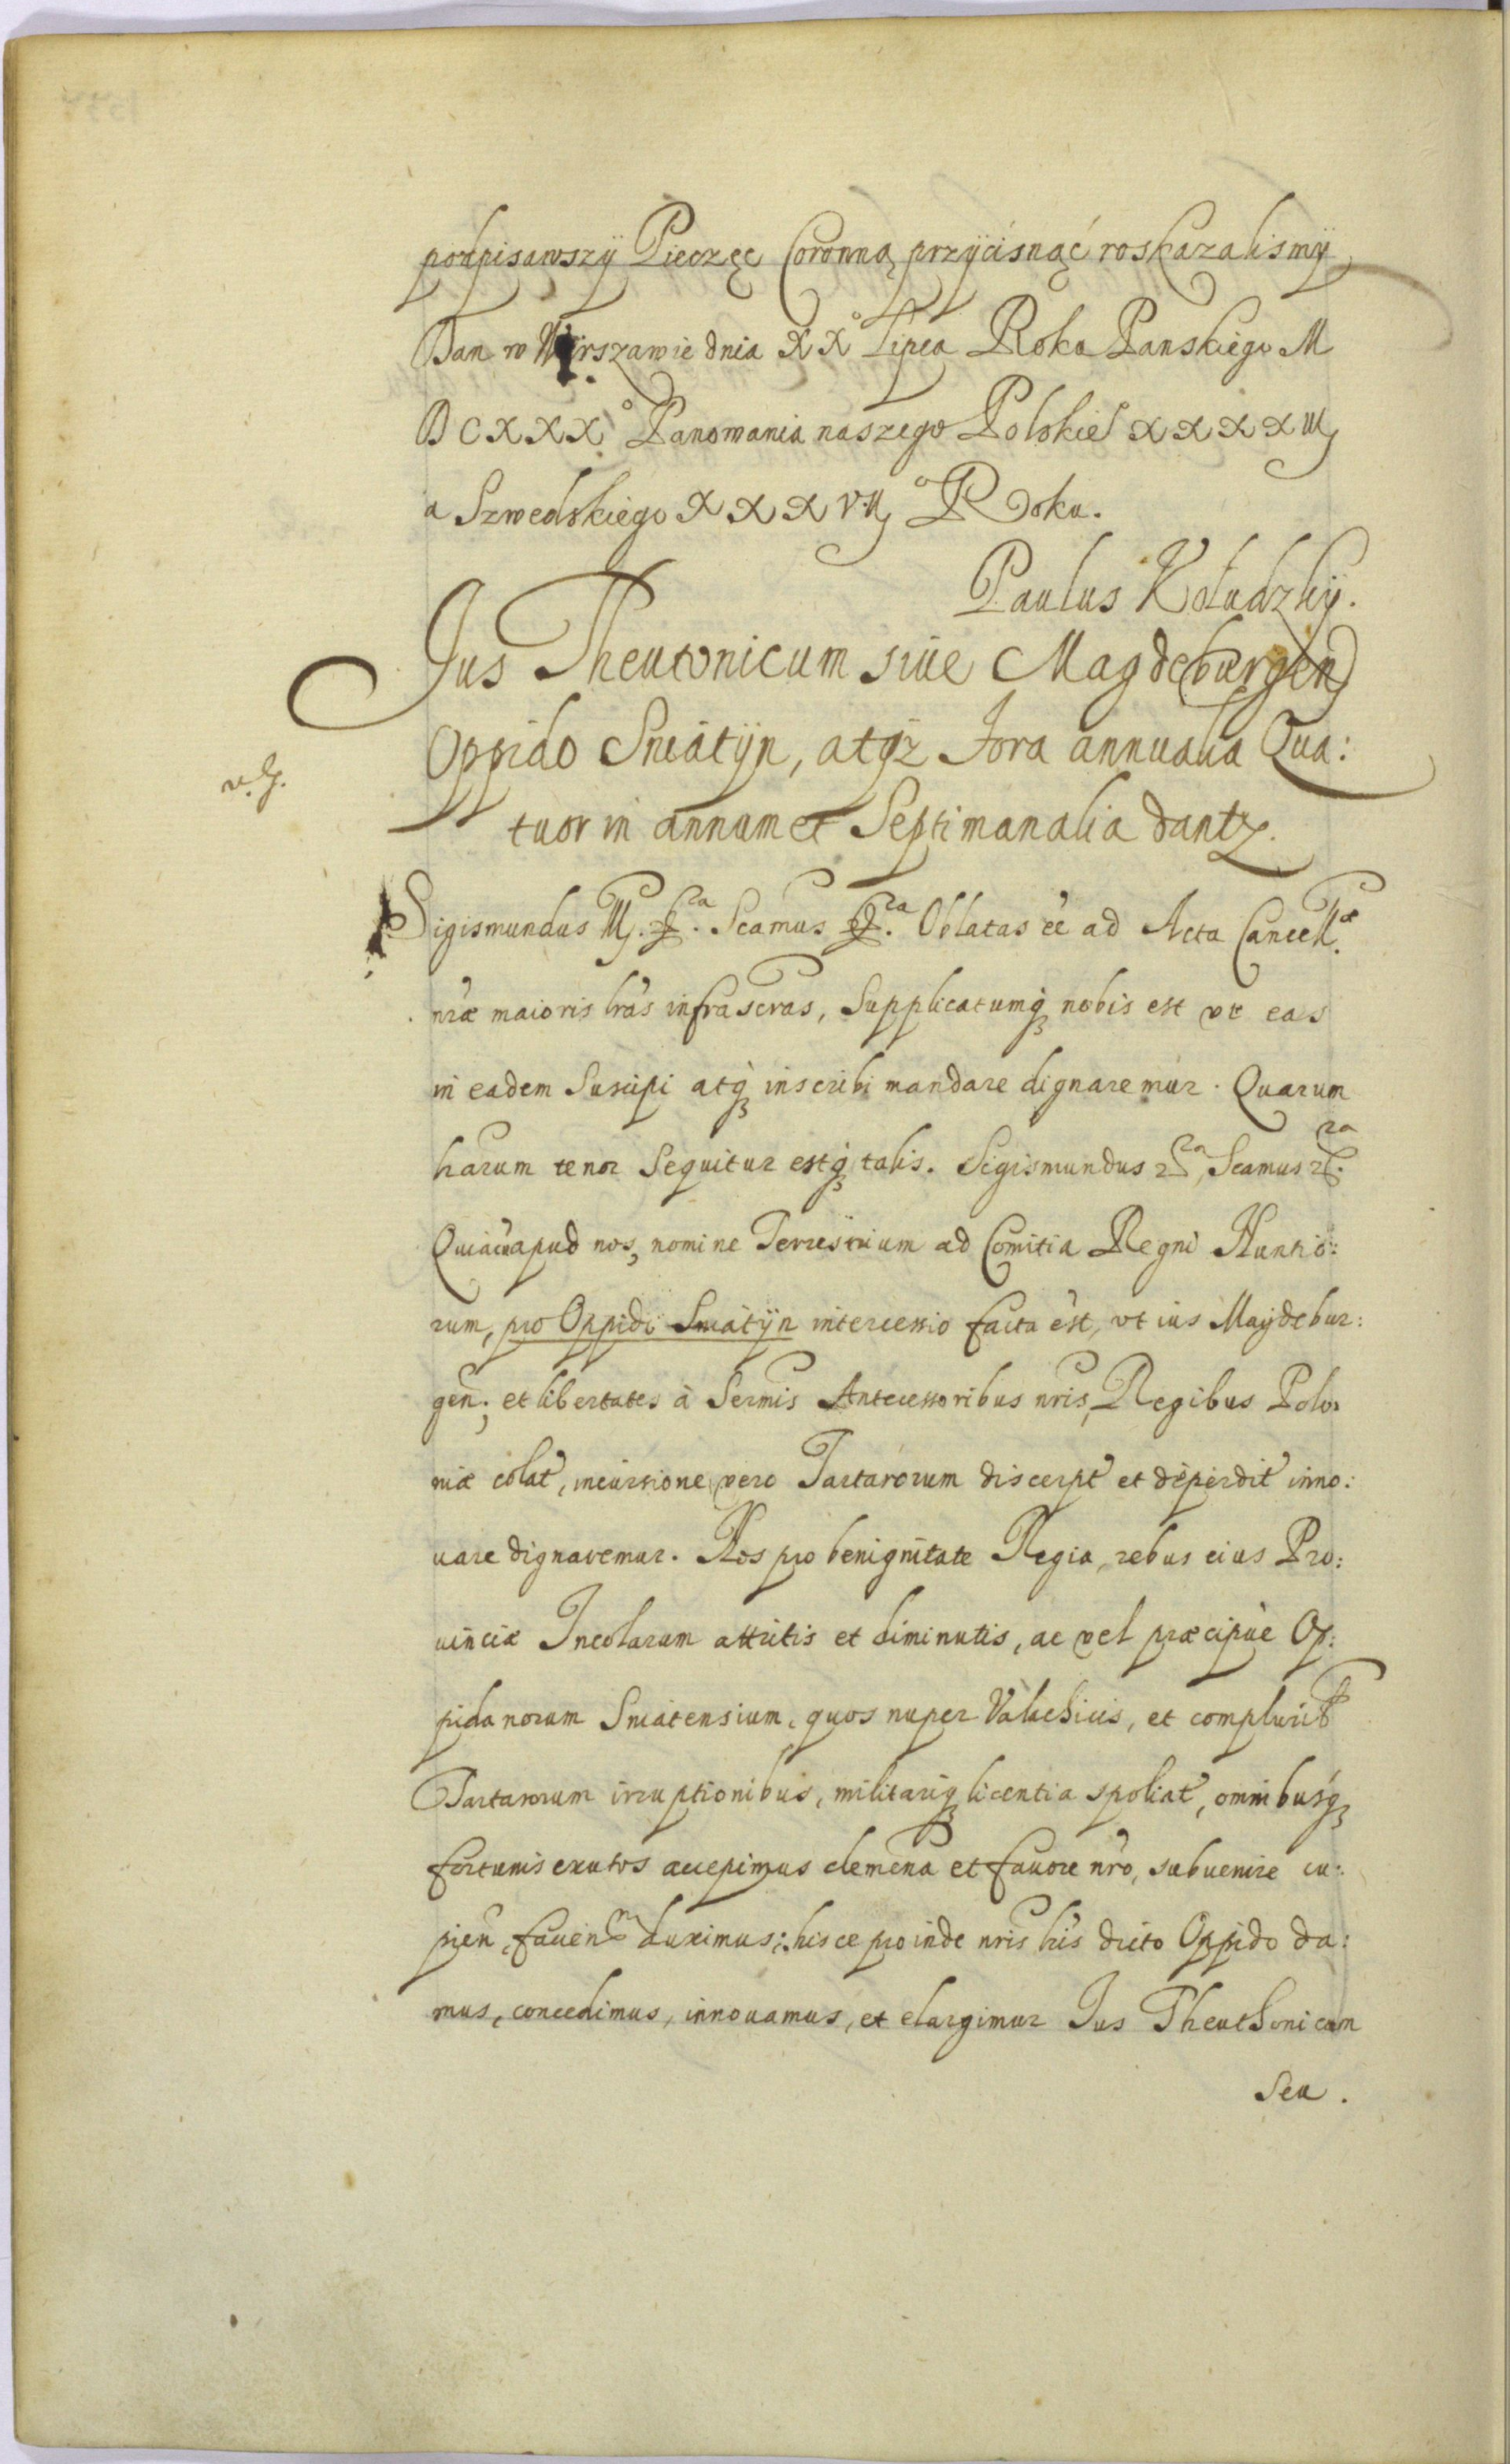 podpisawszÿ Pieczęc Coronną przÿcisnąć roskazalismÿ
Dan w Warszawie dnia XX° Lipca Roku Panskiego M
DCXXX° Panowania naszego Polskie° XXXXIIJ
a Szwedskiego XXXVIJ° Roku.
Paulus Kołudzkÿ.
Jus Theutonicum siue Magdeburgen
Oppido Sniatÿn, atqz Fora annualia Qua:
v. g.
tuor in annum et Septimanalia dantz.
Sigismundus IIJ. Scamus Oblatas ee ad Acta Cancellæ
nræ maioris lras infrascras, Supplicatumqz nobis est vt eas
in eadem Suscipi atqz inscribi mandare dignaremur. Quarum
harum tenor Sequitur estqz talis. Sigismundus Scamus
Quia apud nos, nomine Terrestrium ad Comitia Regni Nuntio:
rum, pro Oppidi Sniatÿn intercessio facta est, vt ius Maydebur:
gen; et libertates à Sermis Antecessoribus nris, Regibus Polo:
niæ colat, incursione vero Tartarorum discerpt et deperdit inno:
uare dignaremur. Nos pro benignitate Regia, rebus eius Pro:
uinciæ Incolarum attritis et diminutis, ac vel præcipuè Op:
pidanorum Sniatensium, quos nuper Valachicis, et complurib
Tartarorum irruptionibus, militariqz licentia spoliat, omnibusqz
fortunis exutos accepimus clemena et fauore nro, subuenire cu:
pien, fauen duximus: hisce proinde nris lris dicto Oppido da:
mus, concedimus, innouamus, et elargimur Jus Theuthonicum
Seu.